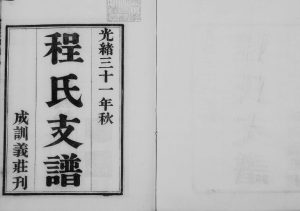 光緒三十一年秋
程氏支譜
成訓義莊刊